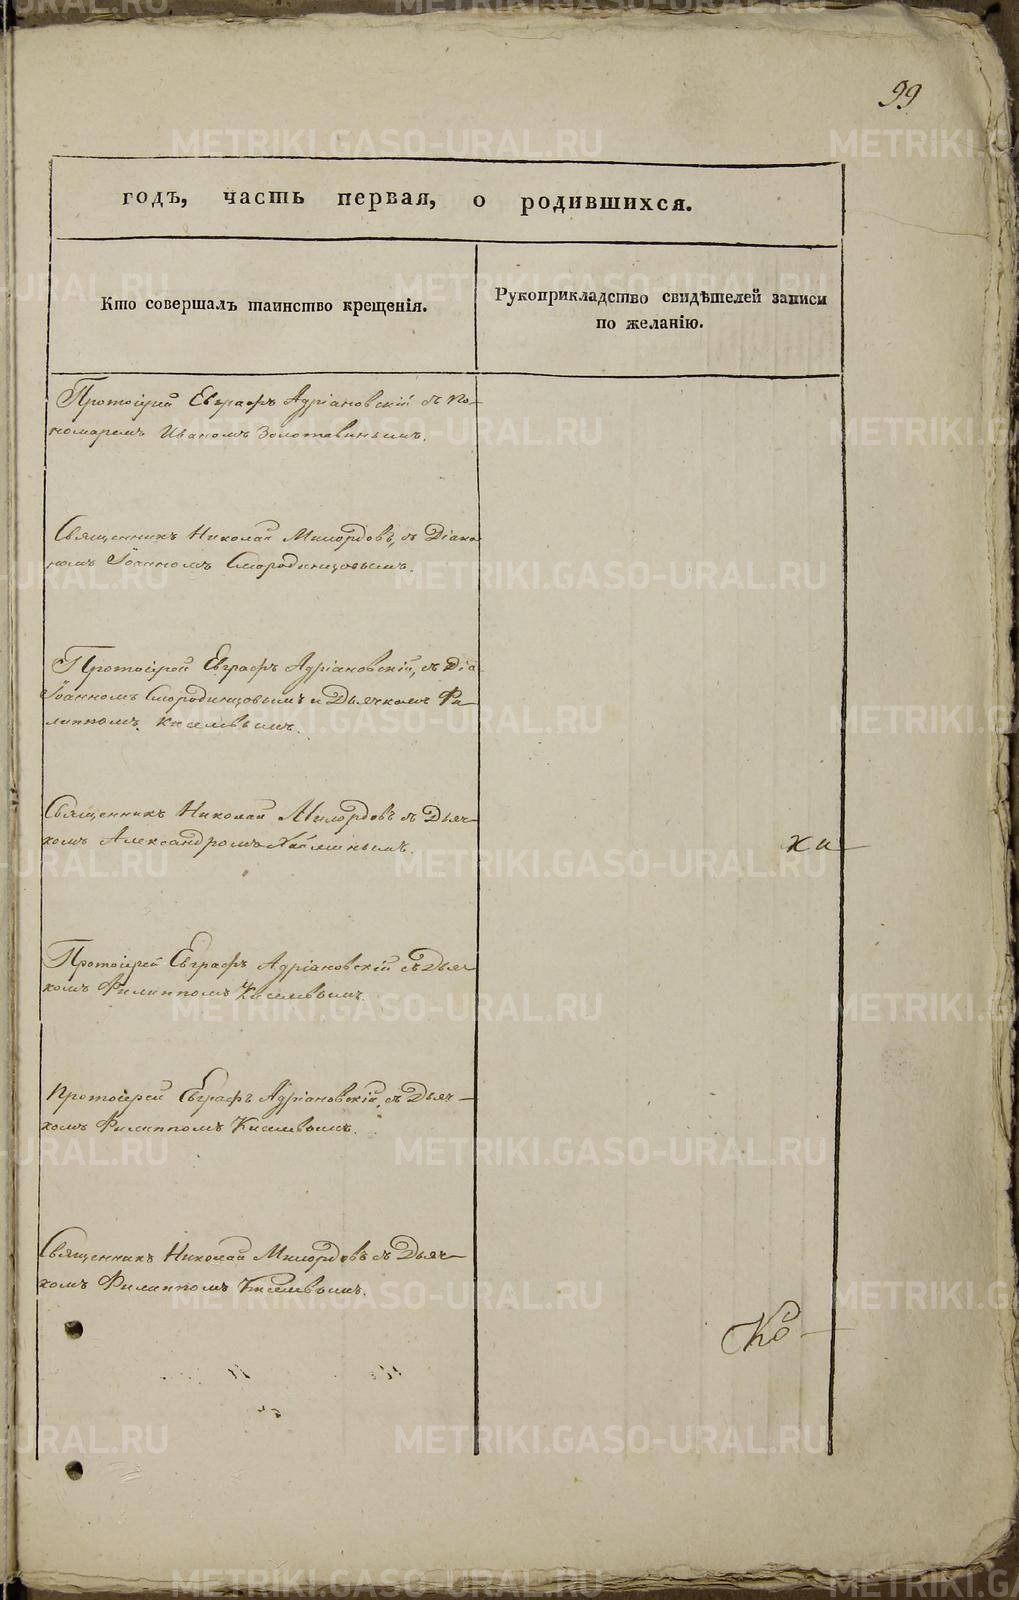 99
годъ, часть первая, о родившихся.
Кто совершалъ таинство крещенія.
Рукоприкладство свидѣтелей записи
по желанію.
Протоіерей Евграфъ Адріановскій съ по-
номаремъ Иваномъ Золотавинымъ.
Священникъ Николай Милордовъ, съ Діако
номъ Іоанномъ Смородинцовымъ.
Протоіерей Евграфъ Адріановскій, съ Діа
Іоанномъ Смородинцовымъ и Дьячкомъ Фи-
липпомъ Киселевымъ.
Священникъ Николай Милордовъ съ Дьяч-
комъ Александромъ
ка
Протоіерей Евграфъ Адріановскій съ Дьяч
комъ Филиппомъ Киселевымъ.
Протоіерей Евграфъ Адріановскій, съ Дьяч-
комъ Филиппомъ Киселевымъ.
Священникъ Николай Милордовъ съ Дьяч-
комъ Филиппомъ Киселевымъ.
METRIKI.GASO-URAL.RU